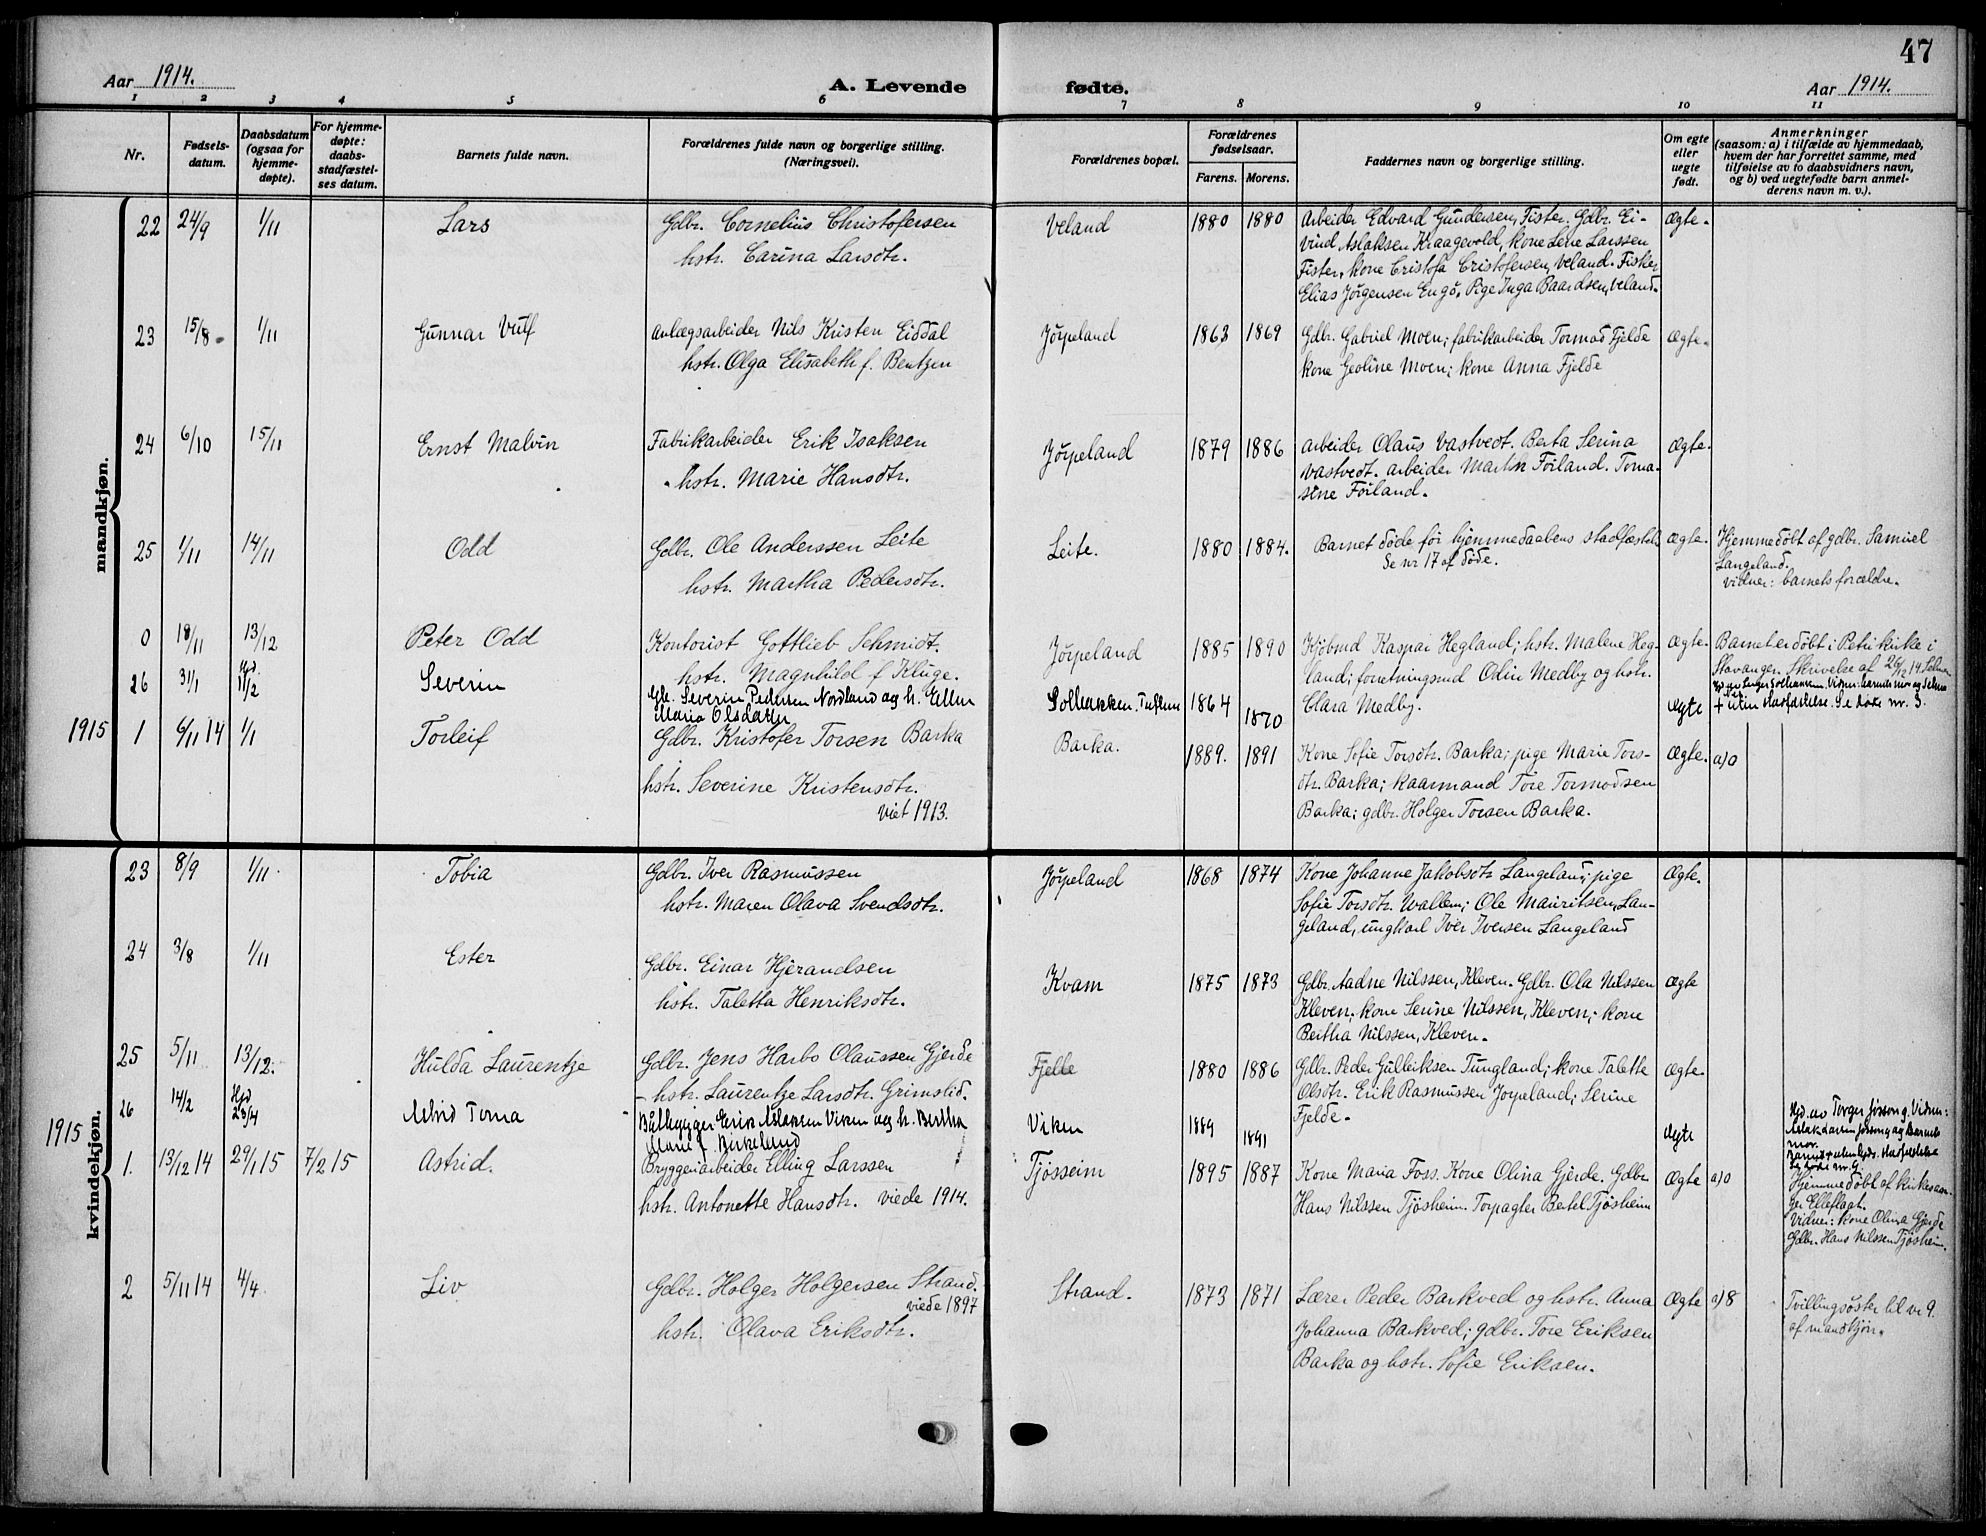 47
Aar 1914.
A. Levende fødte.
Aar 1914.
1 2 3 4 5 6 7 8 9 10 11
Nr.
Fødsels-
datum.
Daabsdatum
(ogsaa for
hjemme-
døpte).
For hjemme-
døpte:
daabs-
stadfæstel-
ses datum.
Barnets fulde navn.
Forældrenes fulde navn og borgerlige stilling.
(Næringsvei).
Forældrenes bopæl.
Forældrenes
fødselsaar.
Farens. Morens.
Faddernes navn og borgerlige stilling.
Om egte
eller
uegte
født.
Anmerkninger
(saasom: a) i tilfælde av hjemmedaab,
hvem der har forrettet samme, med
tilføielse av to daabsvidners navn,
og b) ved uegtefødte barn anmel-
derens navn m. v.).
mandkjøn.
22 24/9 1/11 Lars Gdbr. Cornelius Christofersen
hstr. Carina Larsdtr.
Veland 1880 1880
Arbeider Edvard Gundersen, Fister. Gdbr. Ei-
vind Aslaksen Kraagevold, kone Lene Larssen
Fister, kone Cristofa Cristofersen, Veland. Fisker
Elias Jørgensen Engø. Pige Inga Baardsen, Veland.
Ægte.
23 15/8 1/11 Gunnar Vulf Anlægsarbeider Nils Kristen Eiddal
hstr. Olga Elisabeth f. Bentzen
Jørpeland 1863 1869
Gdbr. Gabriel Moen; fabrikarbeider Tormod Fjelde
kone Geoline Moen; kone Anna Fjelde
Ægte.
24 6/10 15/11 Ernst Malvin Fabrikarbeider Erik Isaksen
hstr. Marie Hansdtr.
Jørpeland 1879 1886
Arbeider Olaus Vastvedt. Berta Serina
Vastvedt. Arbeider Martin Føiland. Toma-
sine Føiland.
Ægte.
25 1/11 14/11 Odd Gdbr. Ole Anderssen Leite
hstr. Martha Pedersdtr.
Leite. 1880 1884.
Barnet døde før hjemmedaabens stadfæstels.
Se nr 17 af døde.
Ægte.
Hjemmedøbt af gdbr. Samuel
Langeland.
Vidner: barnets forældre.
0 18/11 13/12 Peter Odd Kontorist Gottlieb Schmidt.
hstr. Magnhild f Kluge.
Jørpeland 1885 1890
Kjøbmd Kaspar Hegland; hstr. Malene Heg-
land; forretningsmd Odin Medby og hstr.
Clara Medby.
Ægte.
Barnet er døbt i Petrikirke i
Stavanger. Skrivelse af 26/12 14.
26 31/1 Hjd 11/2 Severin Gb. Severin Pedersen Nordland og h. Ellen
Maria Olsdatter
Solbakken. 1864 1870
Ægte
+ uten stadfæstelse. Se døde nr. 3.
1915 1 6/11 14 1/1 Torleif Gdbr. Kristofer Torsen Barka
hstr. Severine Kristensdtr.
viet 1913.
Barka. 1889. 1891
Kone Sofie Torsdtr. Barka; pige Marie Tors-
dtr. Barka; kaarmand Tore Tormodsen
Barka; gdbr. Holger Torsen Barka.
Ægte. a) 0
kvindekjøn.
23 8/9 1/11 Tobia Gdbr. Iver Rasmussen
hstr. Maren Olava Svendsdtr.
Jørpeland 1868 1874
Kone Johanne Jakobsdtr Langeland; pige
Sofie Torsdtr. Wallem; Ole Mauritsen, Lan-
geland, ungkarl Iver Iversen Langeland
Ægte.
24 3/8 1/11 Ester Gdbr. Einar Hjerandsen
hstr. Taletta Henriksdtr.
Kvam 1875 1873
Gdbr. Aadne Nilssen, Kleven. Gdbr. Ola Nilssen
Kleven; kone Serine Nilssen, Kleven; kone
Bertha Nilssen, Kleven.
Ægte
25 5/11 13/12. Hulda Laurentze Gdbr. Jens Harbo Olaussen Gjerde
hstr. Laurentze Larsdtr. Grimslid.
Fjelle 1880 1886
Gdbr. Peder Gulleiksen Tungland; kone Talette
Olsdtr. Erik Rasmussen Jørpeland; Serine
Fjelde.
Ægte.
26 14/2 Hjd 23/4 Astrid Toma Båtbygger Erik Aslaksen Viken og h. Bertha
Marie f. Birkeland
Viken 1889 1891
Ægte
Hjd. av Torger Jøssang. Vidner:
Aslak Larsen Jøssang og Barnets
mor.
Se døde nr. 9
1915 1. 13/12 14 29/1 15 7/2 15 Astrid. Bryggeriarbeider Elling Larssen
hstr. Antonette Hansdtr. viede 1914.
Tjøsseim 1895 1887
Kone Maria Foss. Kone Olina Gjerde. Gdbr.
Hans Nilssen Tjøsheim. Forpagter Bertel Tjøsheim
Ægte a) 0
Hjemmedøbt af kirkesan-
ger Elleflaat.
Vidner: kone Olina Gjerde
Gdbr. Hans Nilssen Tjøsheim.
2 5/11 14 4/4 Liv Gdbr. Holger Holgersen Strand.
viede 1897
hstr. Olava Eriksdtr.
Strand. 1873 1871
Lærer Peder Barkved og hstr. Anna
Johanna Barkved; gdbr. Tore Eriksen
Barka og hstr. Sofie Eriksen.
Ægte a) 8
Tvillingsøster til nr 9.
af mandkjøn.